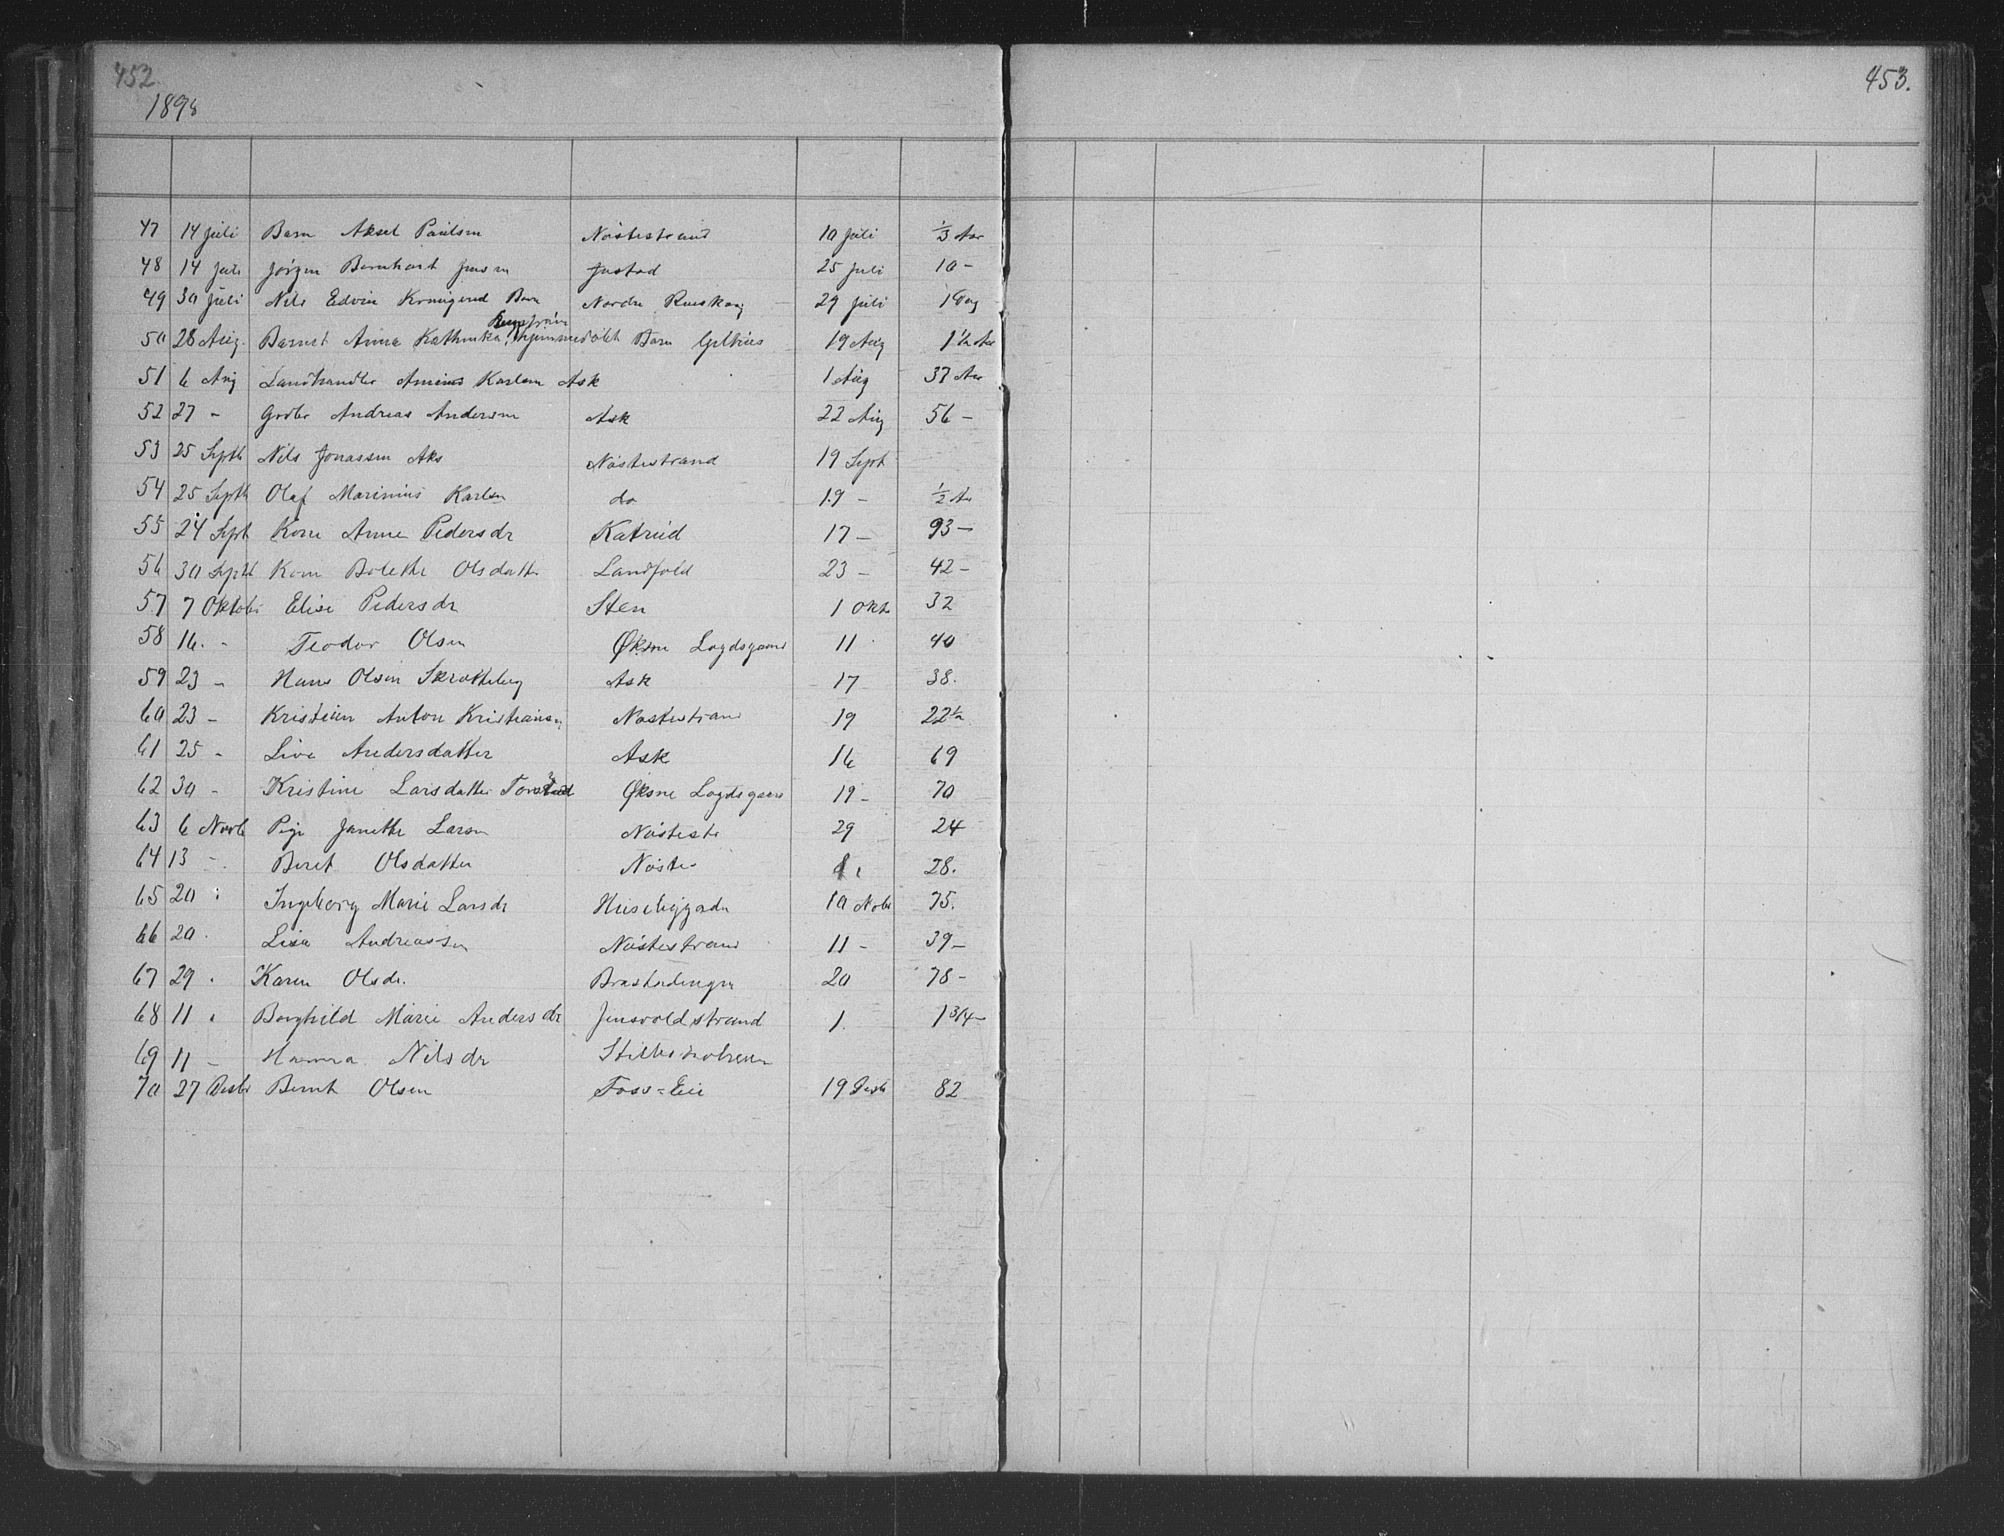 452.
453.
1898
47 14 Juli Barn Aksel Paulsen Nøstestrand 10 Juli 1/3 Aar
48 14 Juli Jørgen Bernhart Jensen Justad 25 Juli 10 -
49 30 Juli Nils Edvin Barn Nordre 29 Juli 1 Dag
50 28 Aug. Barnet Anna Kathinka Barn 19 Aug 1 1/2 Aar
51 6 Aug Landhandler Karlsen Ask 1 Aug 37 Aar
52 27 - Andreas Andersen Ask 22 Aug 56 -
53 25 Septb Nils Jonassen Aks Nøstestrand 19 Sept
54 25 Septb Olaf Marinius Karlsen do 19 - 1/2 Aar
55 24 Sept Kone Anne Pedersdr Katrud 17 - 93 -
56 30 Septb Kone Bolethe Olsdatter Landfald 23 - 42 -
57 7 Oktober Elise Pedersdr Sten 1 Okt 32
58 16. - Teodor Olsen Øksne Lagdsgaard 11 40
59 23 - Hans Olsen Ask 17 38.
60 23 - Kristian Anton Kristiansen Nøstestrand 19 22 1/2
61 25 - Live Andersdatter Ask 16 69
62 30 - Kristine Larsdatter Øksne Lagdsgaard 19 - 70
63 6 Novb Pige Janette Larsen Nøstestr 29 24
64 13 - Beret Olsdatter Nøste 28.
65 20 Ingeborg Marie Larsdr Husebygade 10 Nobr 75.
66 20. Lisa Andreassen Nøstestrand 11 - 39 -
67 29 Karen Olsdr. 20 78 -
68 11 Borghild Marie Andersdr Jensvoldstrand 1. 1 3/4 -
69 11 - Hanna Nilsdr
70 27 Desbr Bernt Olsen Foss-Eie 19 Desb 82